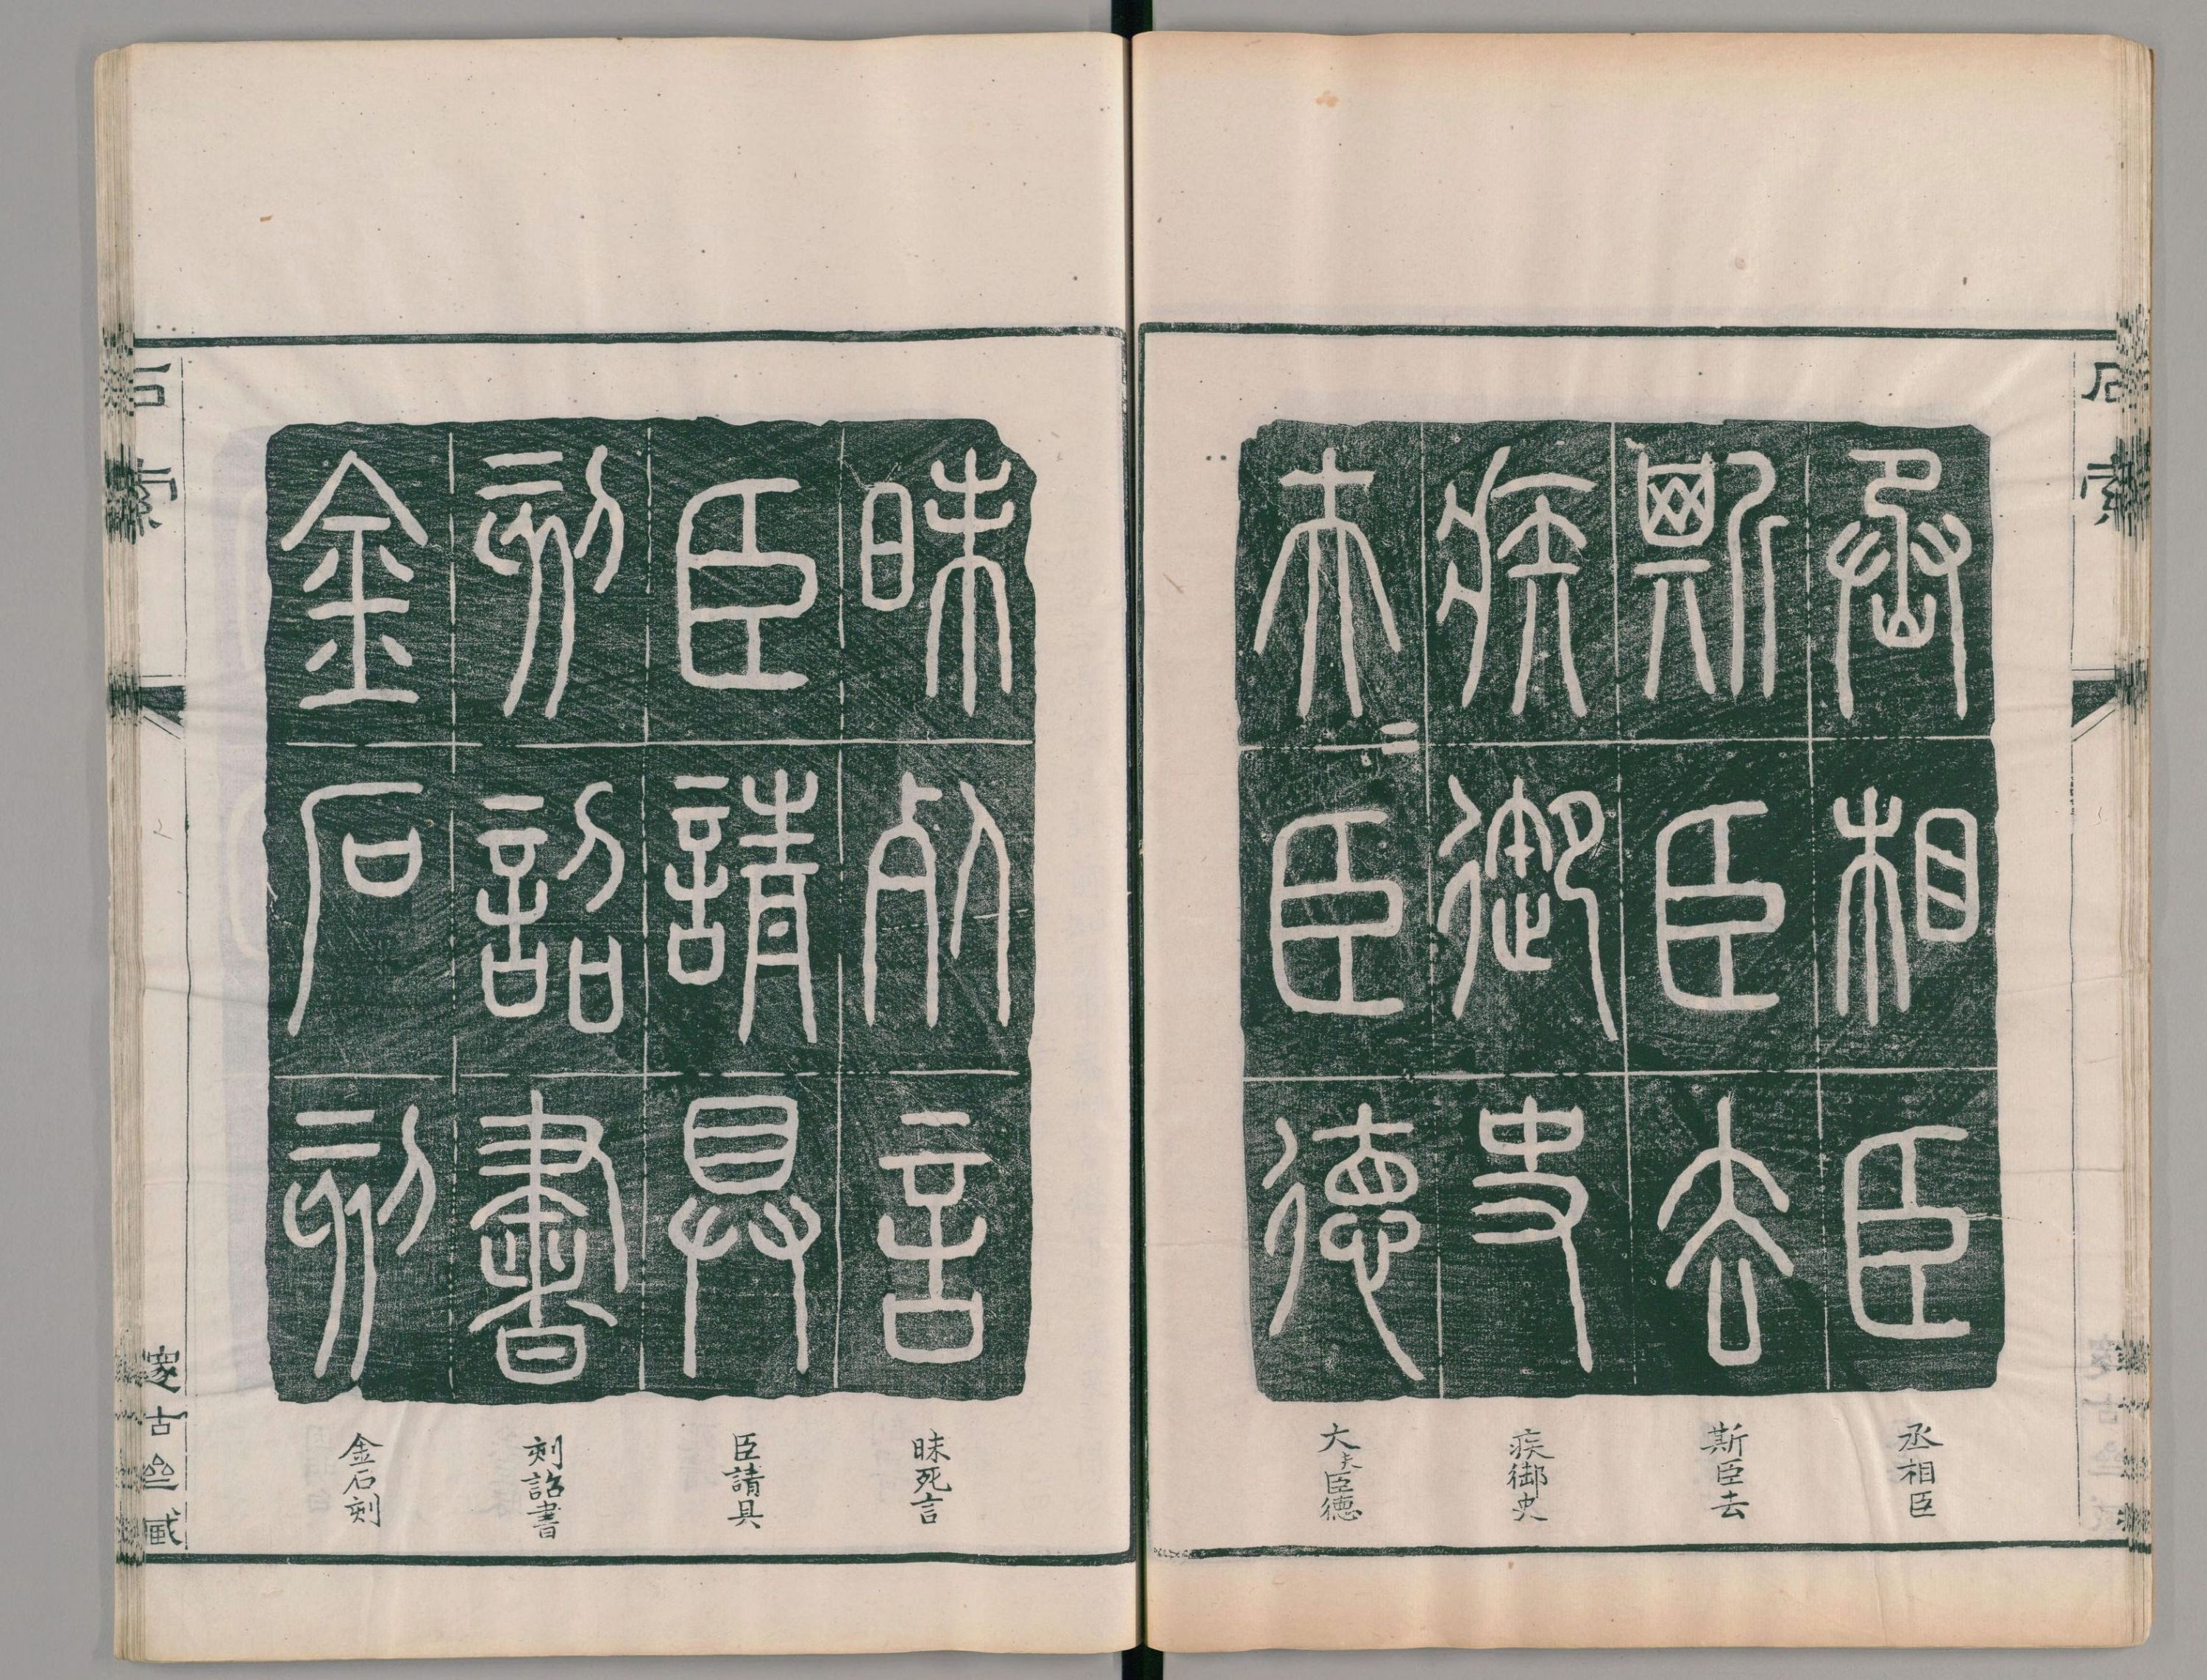 石索
丞相臣
斯臣去
疾御史
夫=臣德
丞相臣
斯臣去
疾御史
大夫臣德
昧死言
臣請具
刻詔書
金石刻
昧死言
臣請具
刻詔書
金石刻
石索
邃古亝藏